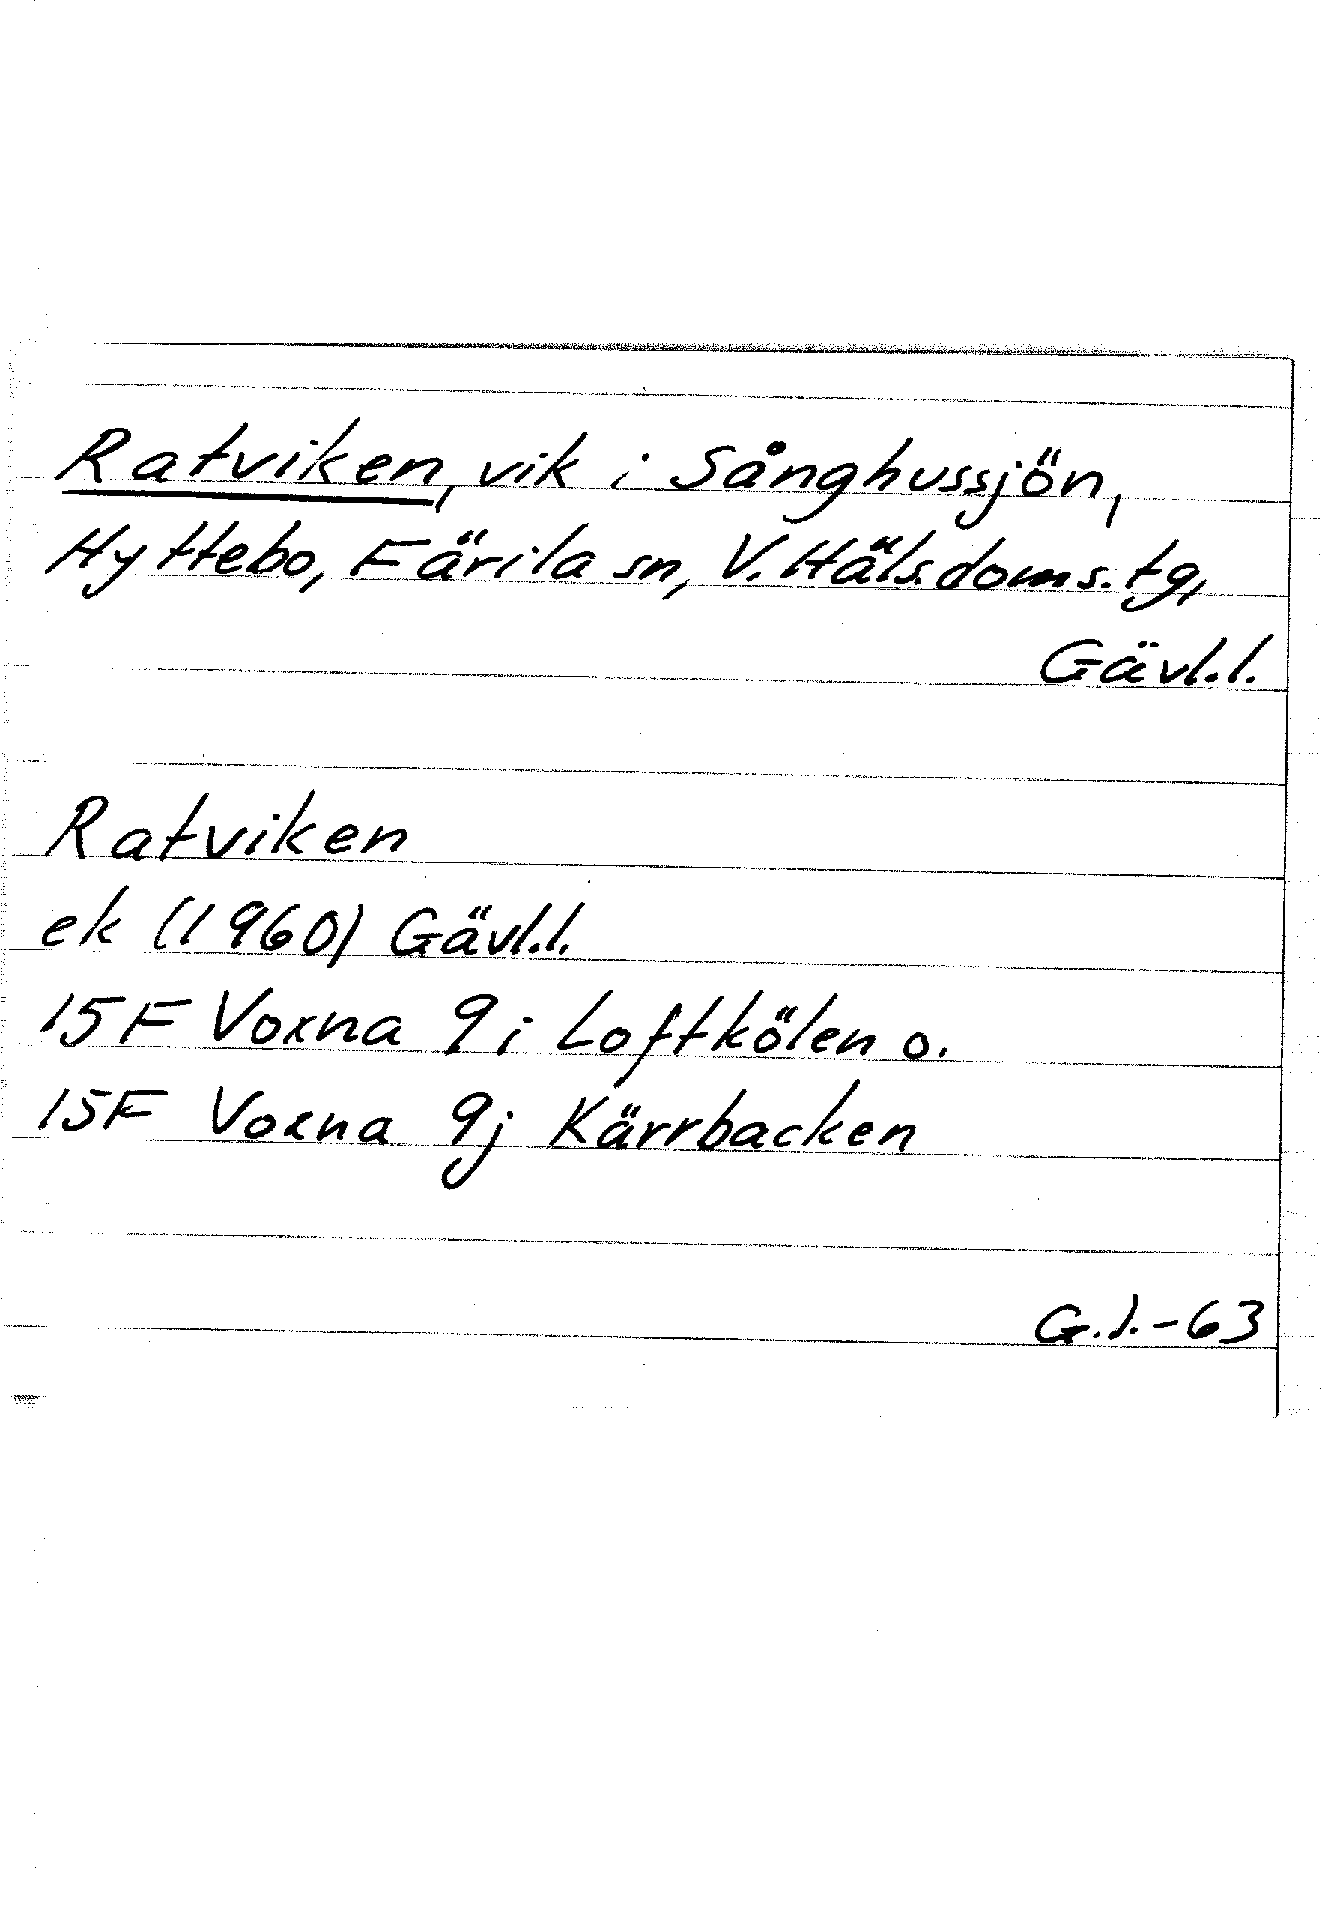 Ratviken, vik i Sånghussjön,
Hyttebo, Färila sn, V. Häls. doms. tg,
Gävl.l.
Ratviken
ek (1960) Gävl.l.
15F Voxna 9i Loftkölen o.
15F Voxna 9j Kärrbacken
G.l.-63